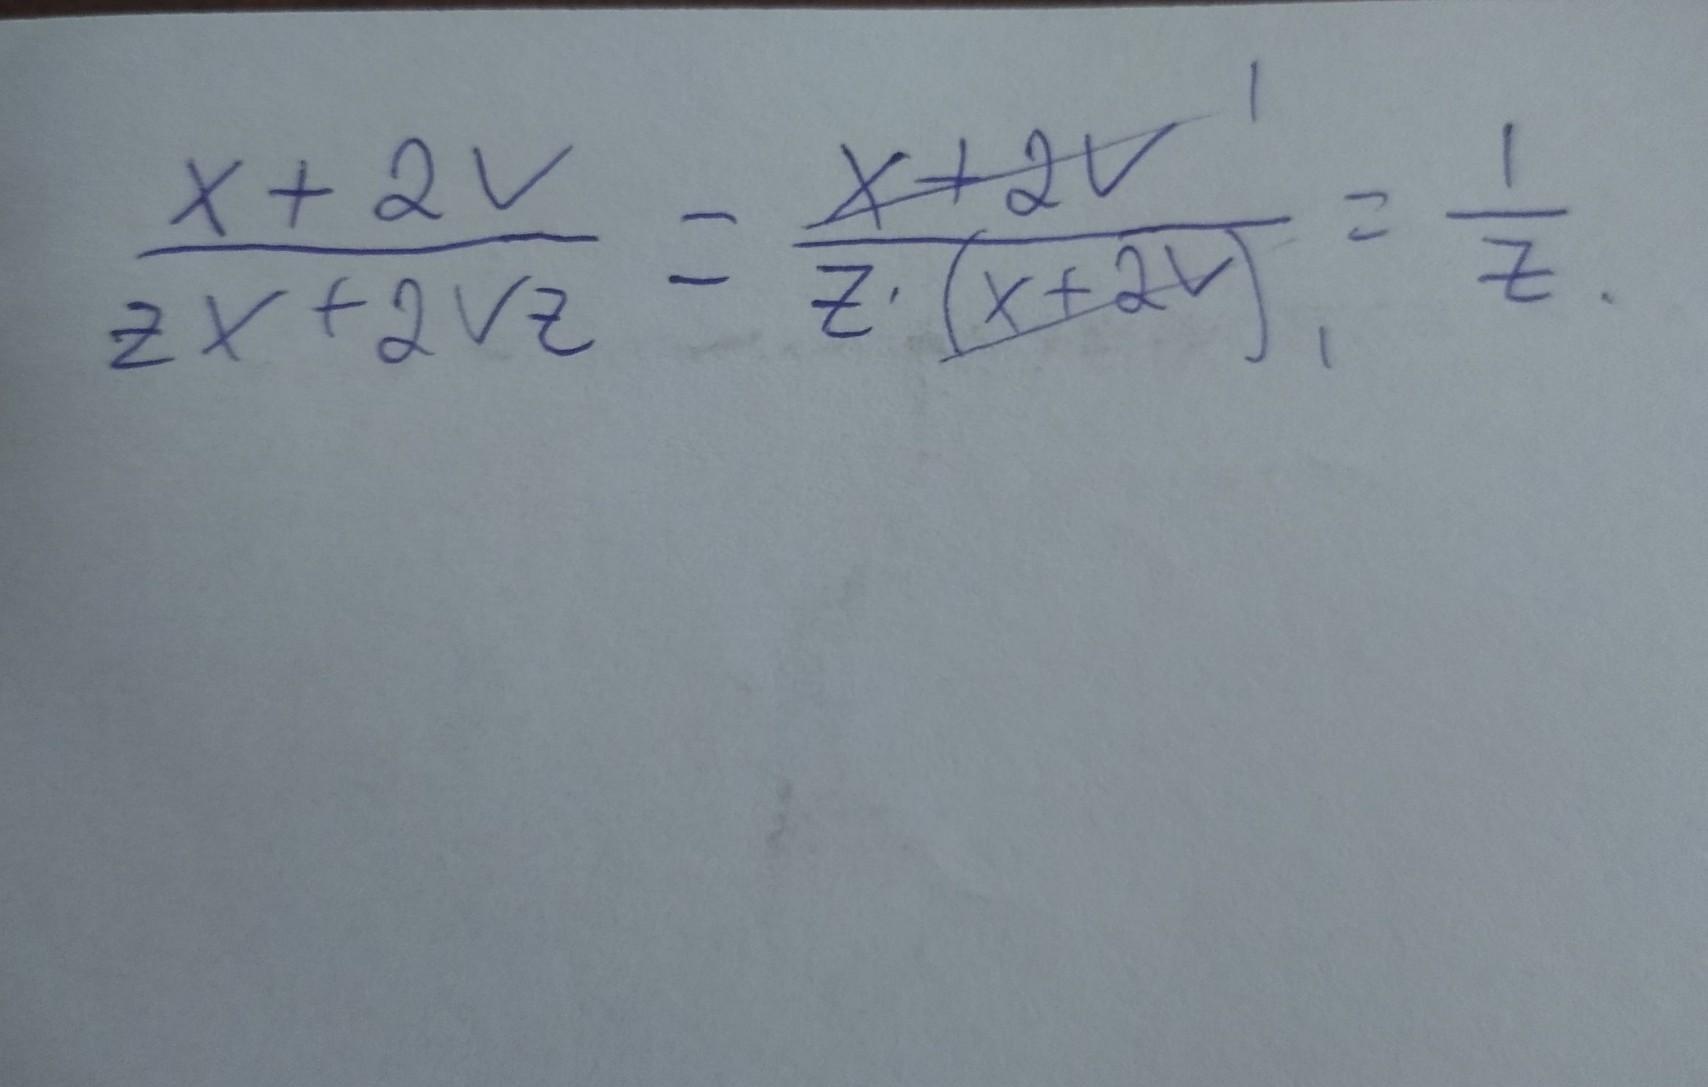 x + 2v / zx + 2vz = x + 2v 1 / z · (x + 2v) 1 = 1 / z .